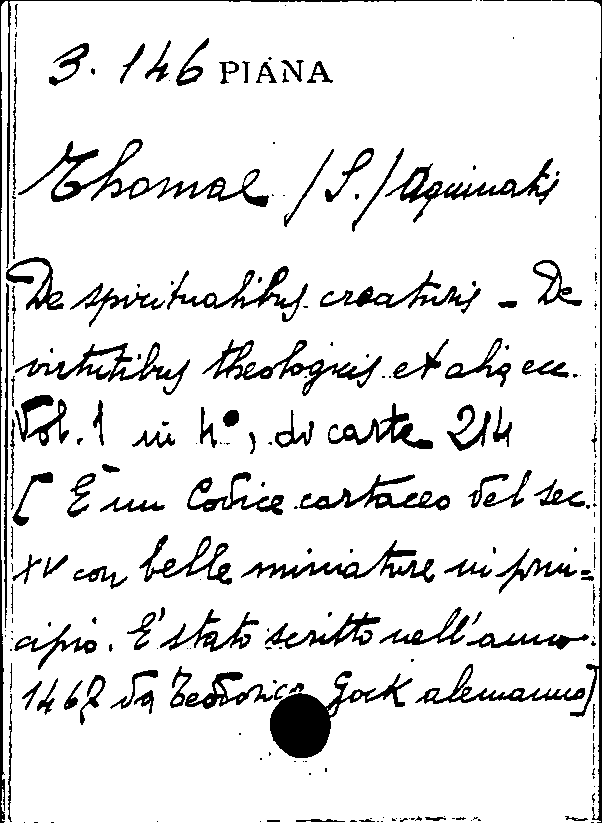 3. 146 PIANA
Thomae /S./ Aquinatis
De spiritualibus creaturis - De
virtutibus theologicis et aliq ecc.
Vol. 1 in 4°, di carte 214
[ È un Codice cartaceo del sec.
XV con belle miniature in prin=
cipio. E' stato scritto nell'anno
1467 da Teodorico Gock alemanno]